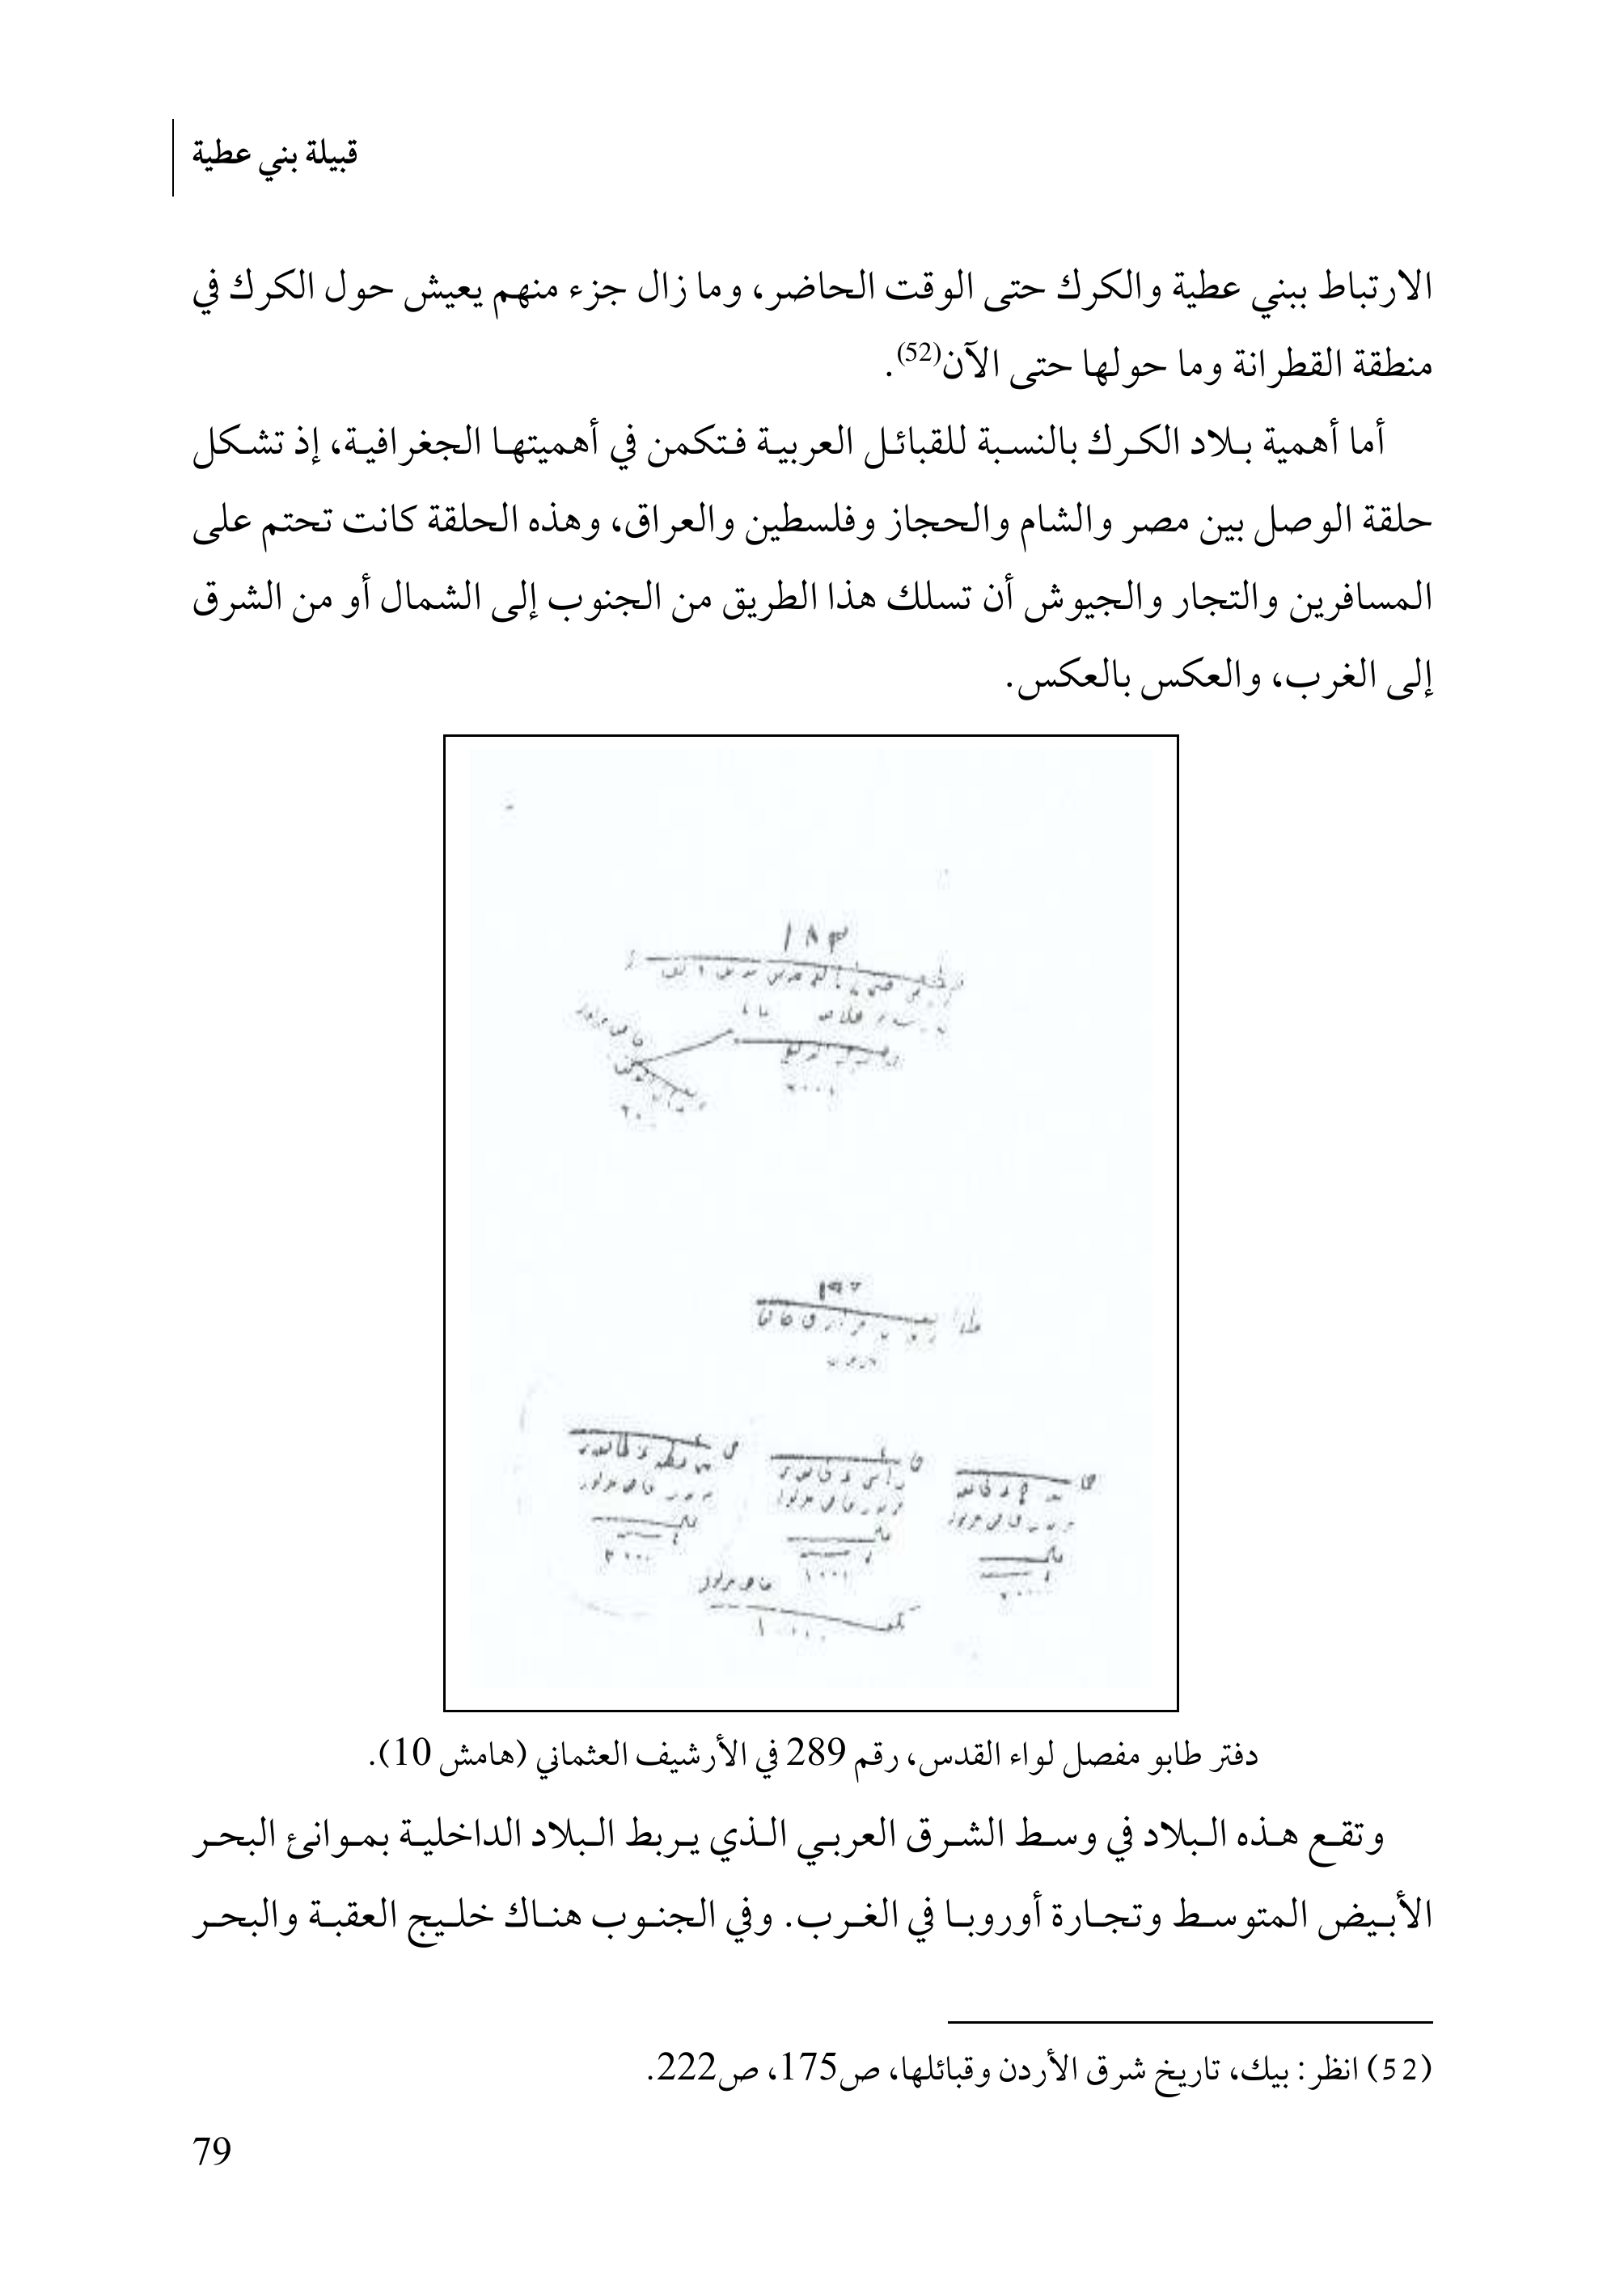 قبيلة بني عطية
الارتباط ببني عطية والكرك حتى الوقت الحاضر، وما زال جزء منهم يعيش حول الكرك في
منطقة القطرانة وما حولها حتى الآن(52).
أما أهمية بلاد الكرك بالنسبة للقبائل العربية فتكمن في أهميتها الجغرافية، إذ تشكل
حلقة الوصل بين مصر والشام والحجاز وفلسطين والعراق، وهذه الحلقة كانت تحتم على
المسافرين والتجار والجيوش أن تسلك هذا الطريق من الجنوب إلى الشمال أو من الشرق
إلى الغرب، والعكس بالعكس.
دفتر طابو مفصل لواء القدس، رقم 289 في الأرشيف العثماني (هامش 10).
وتقع هذه البلاد في وسط الشرق العربي الذي يربط البلاد الداخلية بموانئ البحر
الأبيض المتوسط وتجارة أوروبا في الغرب. وفي الجنوب هناك خليج العقبة والبحر
(52) انظر: بيك، تاريخ شرق الأردن وقبائلها، ص175، ص222.
79